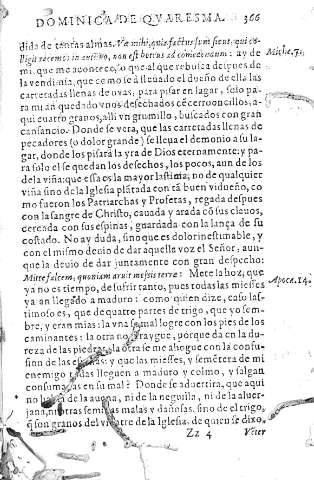 DOMINICA DE QVARESMA. 366
dida de tantas almas. Væ mihi, quia factus sum sicut, qui co-
lligit racemos in autũno, non est botrus ad comedendum: ay de
mi, que me acontece, lo que al que rebusca despues de
la vendimia, que como se à lleuado el dueño de ella las
carretadas llenas de uvas, para pisar en lagar, solo pa-
ra mi an quedado vnos desechados cẽcerroncillos, a-
qui cuatro granos, alli vn grumillo, buscados con gran
cansancio. Donde se vera, que las carretadas llenas de
pecadores (o dolor grande) se lleua el demonio a su la-
gar, donde los pisará la yra de Dios eternamente: y pa-
ra solo el se quedan los desechos, los pocos, aun de los
de la viña: que essa es la mayor lastima; no de qualquier
viña sino de la Iglesia plãtada con tã buen vidueño, co
mo fueron los Patriarchas y Profetas, regada despues
con la sangre de Christo, cauada y arada cõ sus clauos,
cercada con sus espinas, guardada con la lança de su
costado. No ay duda, sino que es dolor inestimable, y
con el mismo deuio de dar aquella voz el Señor, aun-
que la deuio de dar juntamente con gran despecho:
Mitte falcem, quoniam aruit messis terræ: Mete la hoz, que
ya no es tiempo, de sufrir tanto, pues todas las miesses
ya an llegado a maduro: como quien dize, caso las-
timoso es, que de quatro partes de trigo, que yo sem-
bre, y eran mias: la vna se mal logre con los pies de los
caminantes: la otra no fraygue, porque da en la du-
reza de las piedras, la otra se me ahogue con la confu-
sion de las espinas: y que las miesses, y semẽtera de mi
enemigo todas lleguen a maduro y colmo, y salgan
consumadas en su mal? Donde se aduertira, que aqui
no habla de la auena, ni de la neguilla, ni de la aluer-
jana, ni otras semillas malas y dañosas, sino de el trigo,
q̃ son granos del vientre de la Iglesia, de quien se dixo,
Zz 4 Vẽter
Miche. 7.
Apoca. 14.